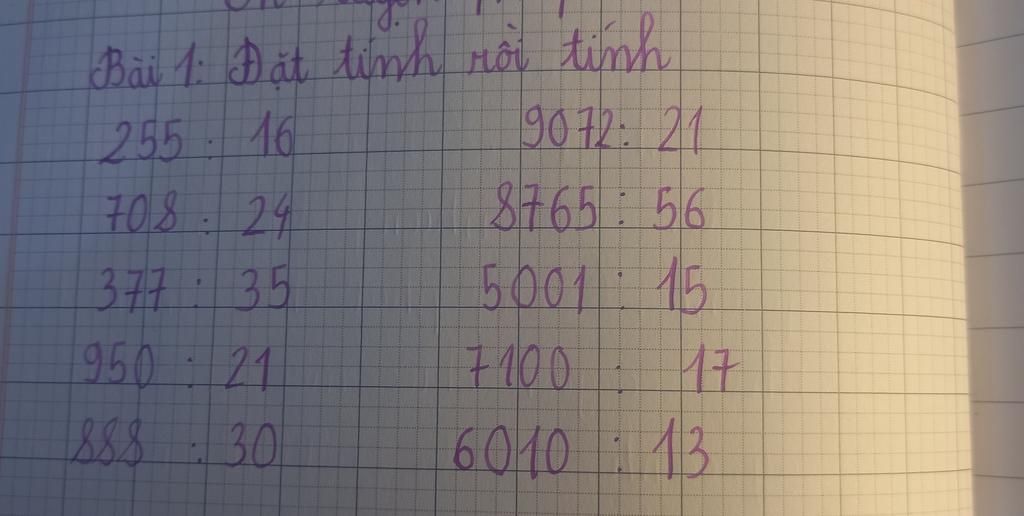 Bài 1: Đặt tính rồi tính
255 : 16 9072 : 21
708 : 24 8765 : 56
377 : 35 5001 : 15
950 : 21 7100 : 17
888 : 30 6010 : 13